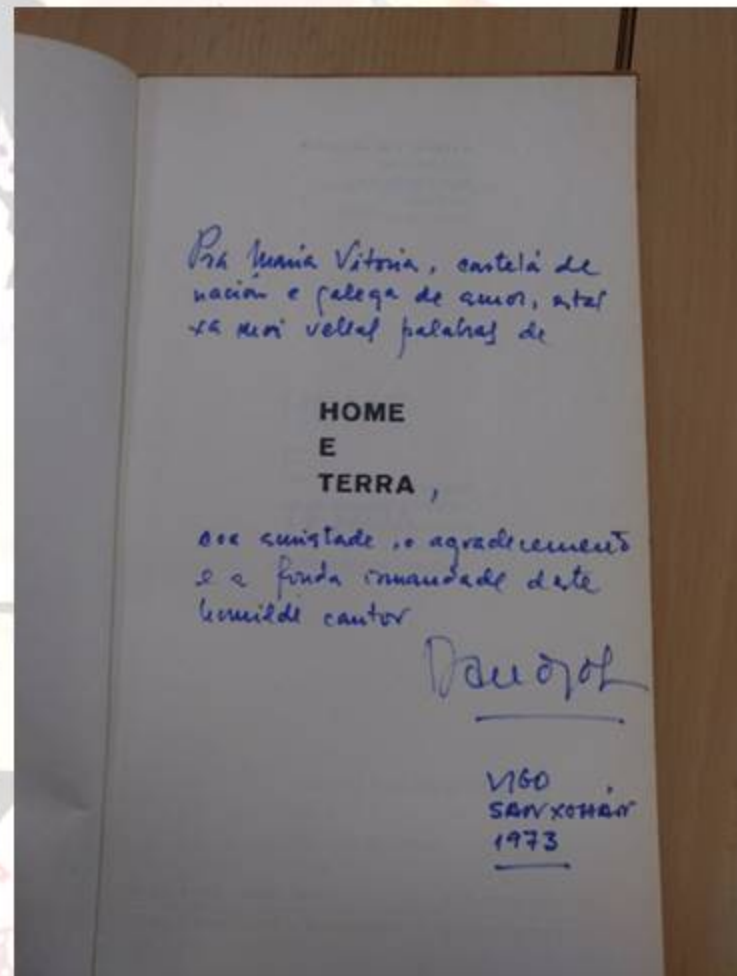 Pra María Vitoria, castelá de
nación e galega de amor, estas
xa moi vellas palabras de
HOME
E
TERRA,
coa amistade, o agradecemento
e a fonda irmandade deste
homilde cantor
VIGO
SAN XOHÁN
1973